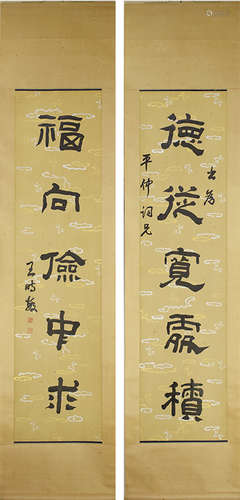 德從寬處積
書為
平仲詞兄
福向儉中求
王時敏